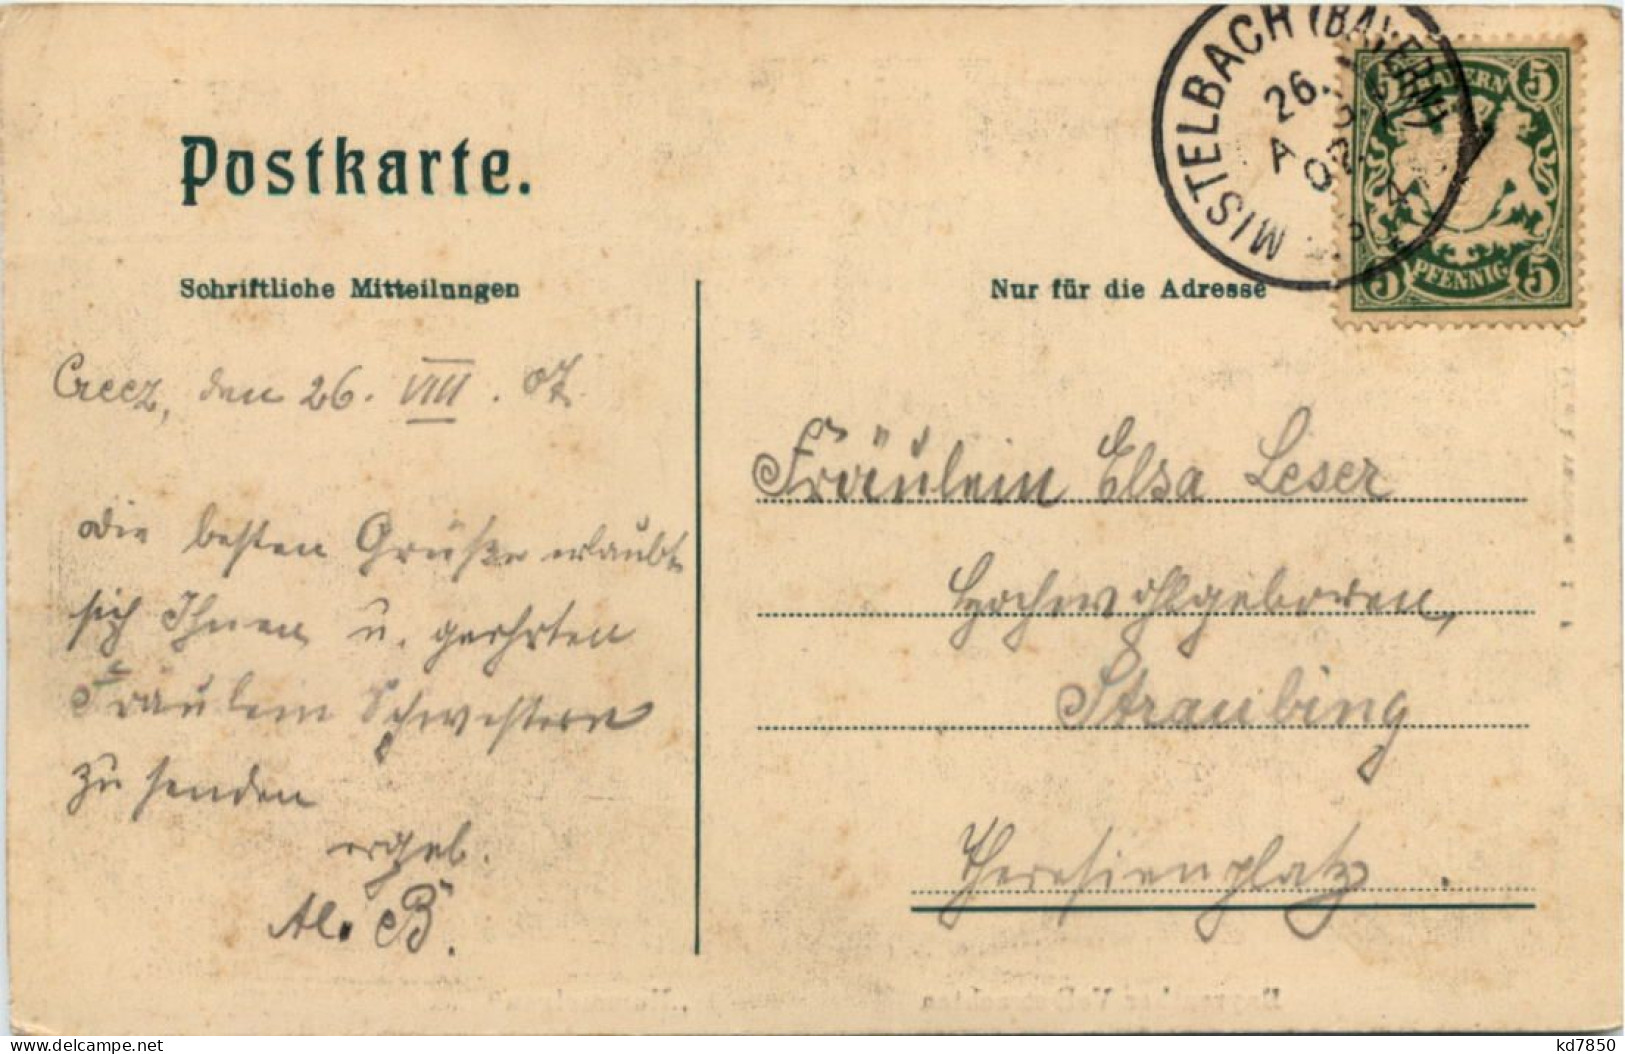 Postkarte.
MISTELBACH (BAYERN)
26.
BAYERN
5 5
PFENNIG
5 5
Schriftliche Mitteilungen
Nur für die Adresse
Creez, den 26. VIII. 07.
Die besten Grüße erlaubt
sich Ihnen u. geehrten
Fräulein Schwestern
zu senden
ergeb.
Al. B.
Fräulein Elsa Leser
Hochwohlgeboren,
Straubing
Theresienplatz.
delcampe.net
kd7850